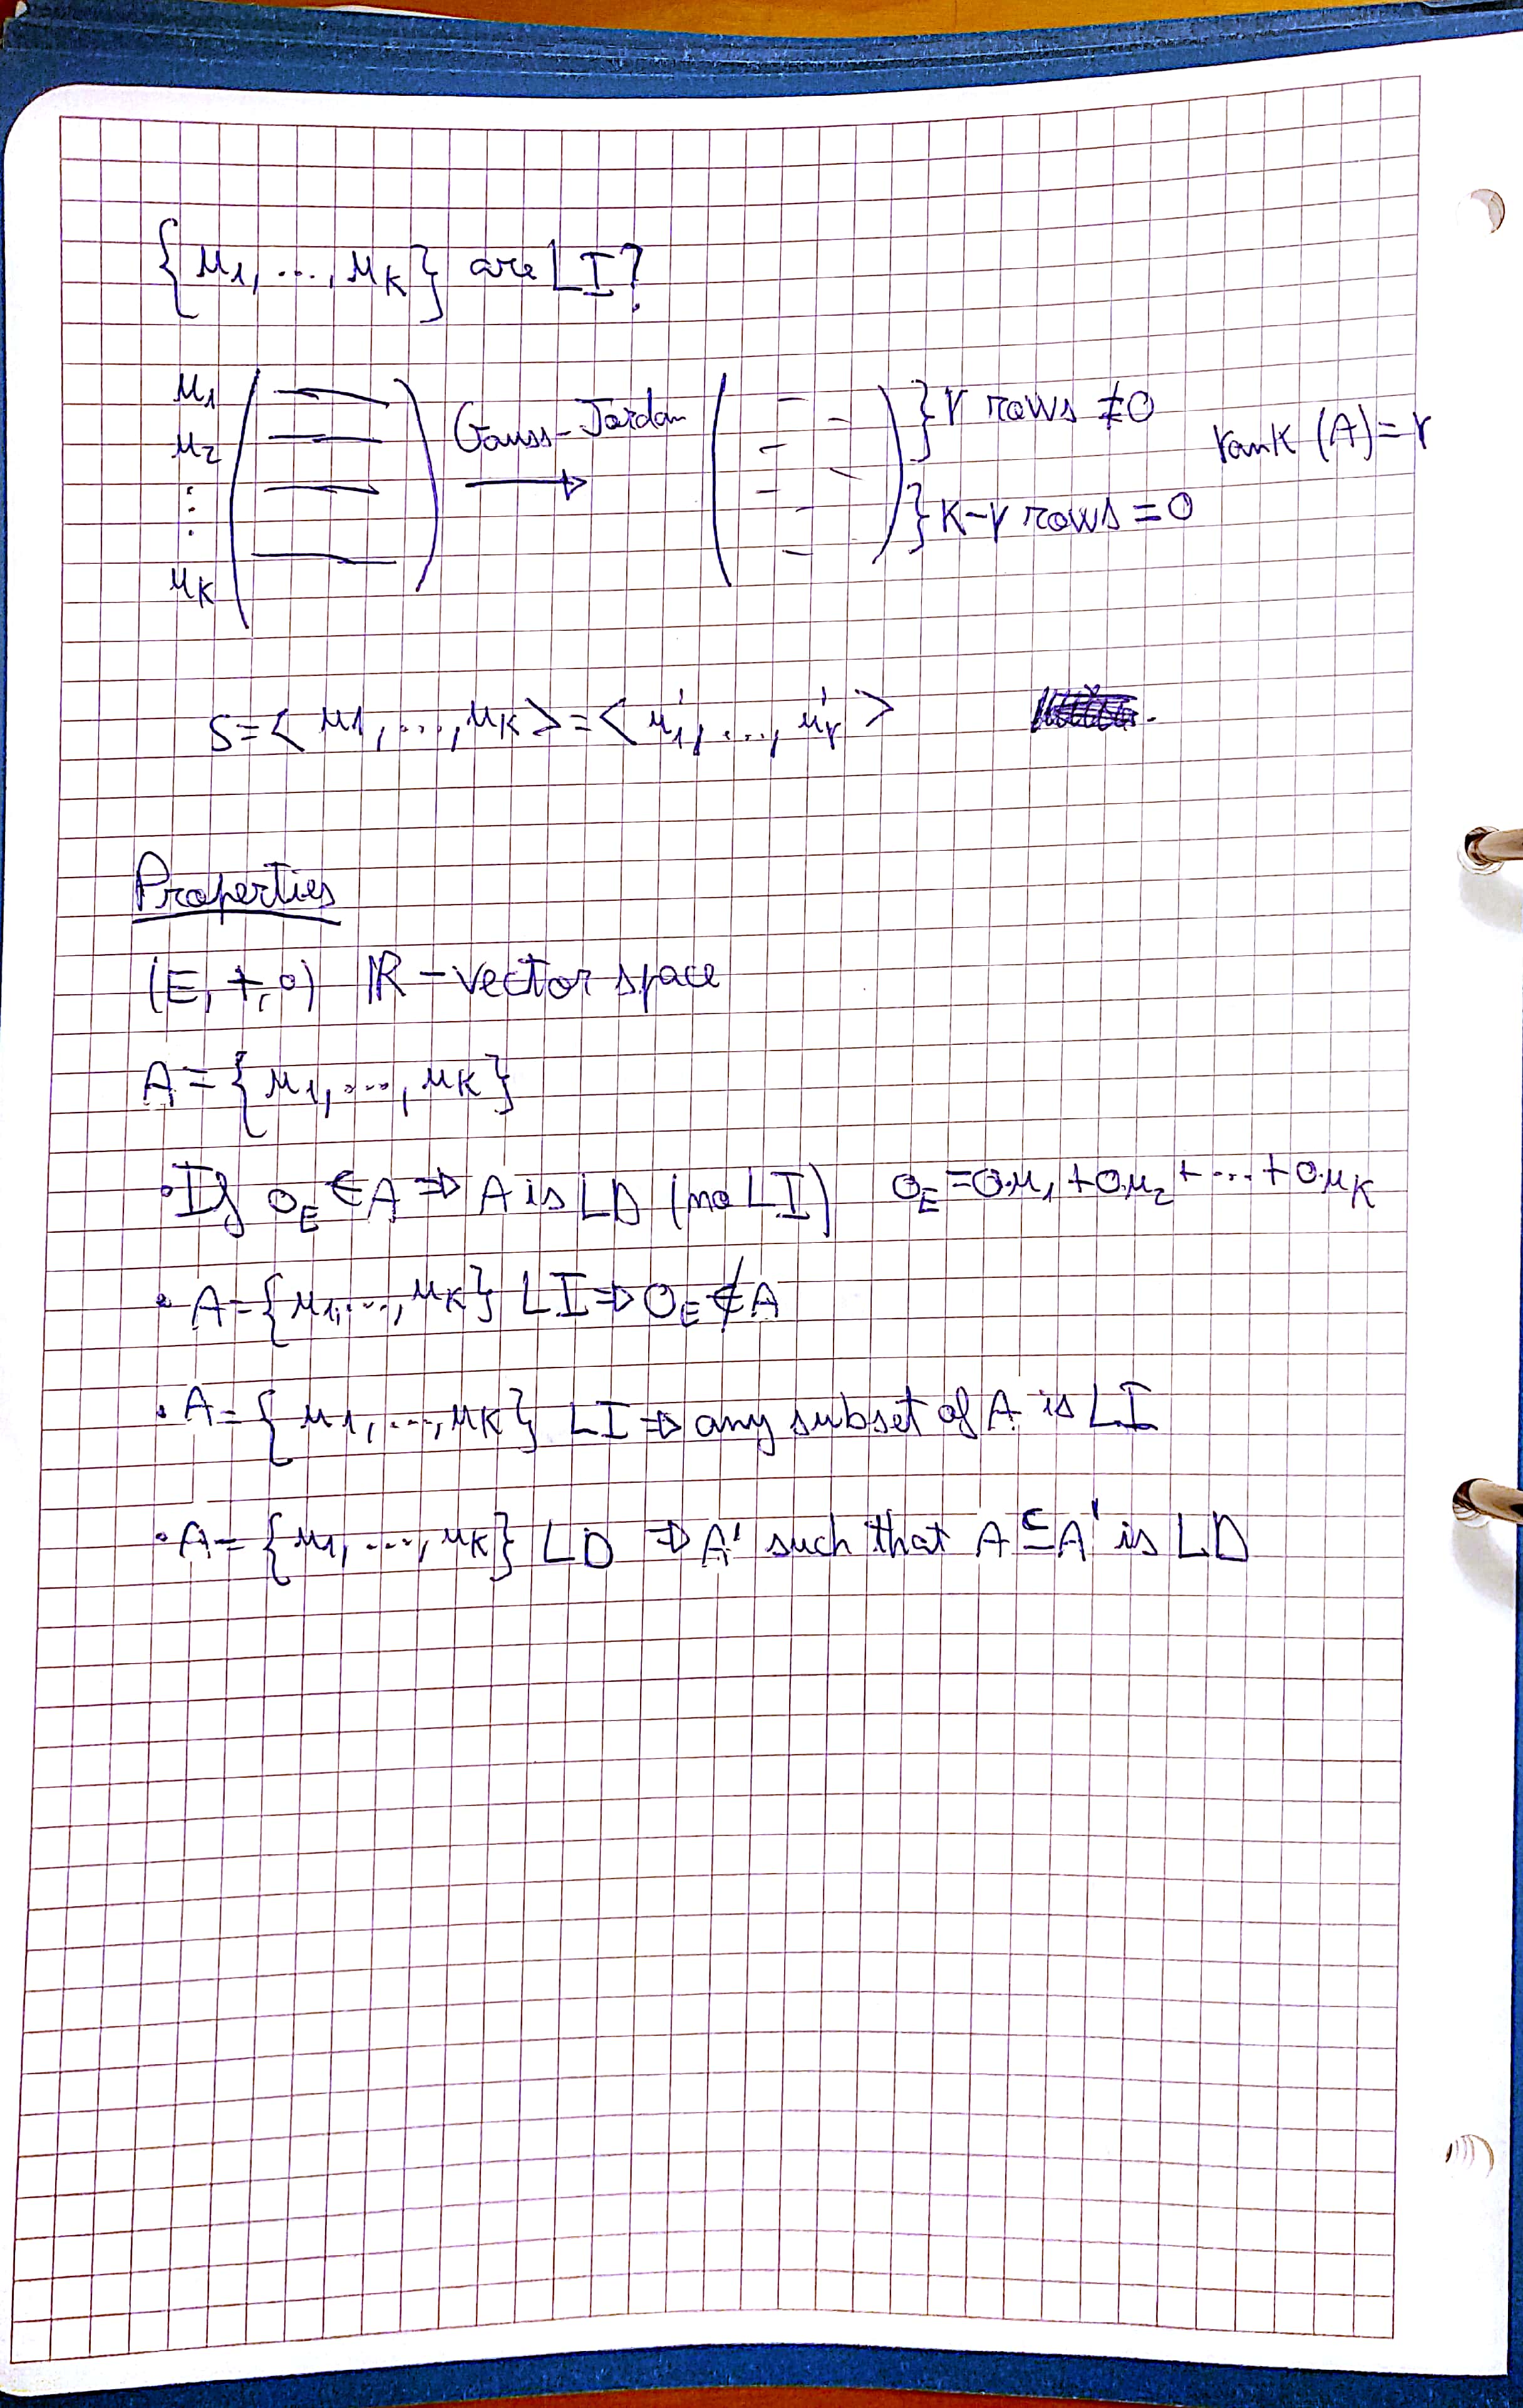 {u1, ..., uK} are LI?
u1
u2
⋮
uK
Gauss-Jordan
→
} r rows ≠ 0
} K-r rows = 0
rank (A) = r
S = < u1, ..., uK > = < u'1, ..., u'r >
Properties
(E, +, ∘) ℝ-vector space
A = {u1, ..., uK}
• If 0E ∈ A ⇒ A is LD (no LI) 0E = 0·u1 + 0·u2 + ... + 0·uK
• A = {u1, ..., uK} LI ⇒ 0E ∉ A
• A = {u1, ..., uK} LI ⇒ any subset of A is LI
• A = {u1, ..., uK} LD ⇒ A' such that A ⊆ A' is LD